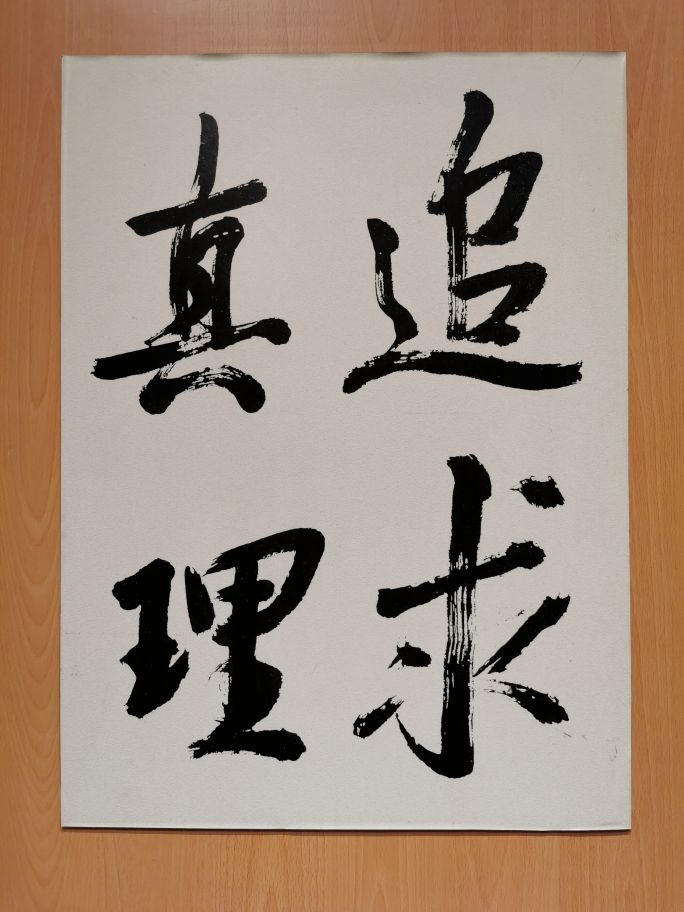 追求
真理